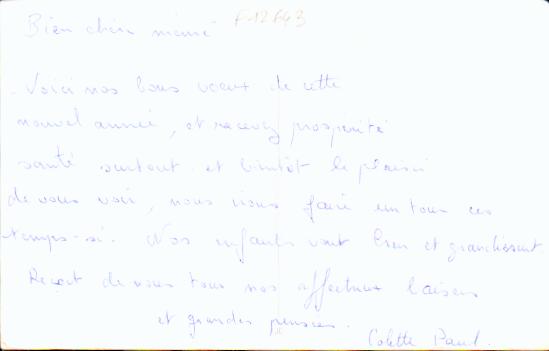 F-12643
Bien chère mémé
Voici nos bons voeux de cette
nouvel année, et recevez prospérité
santé surtout et bientôt le plaisir
de vous voir, nous irons faire un tour ces
temps-si. Nos enfants vont bien et grandissent
Reçoit de nous tous nos affectueux baisers
et grandes pensées.
Colette Paul.